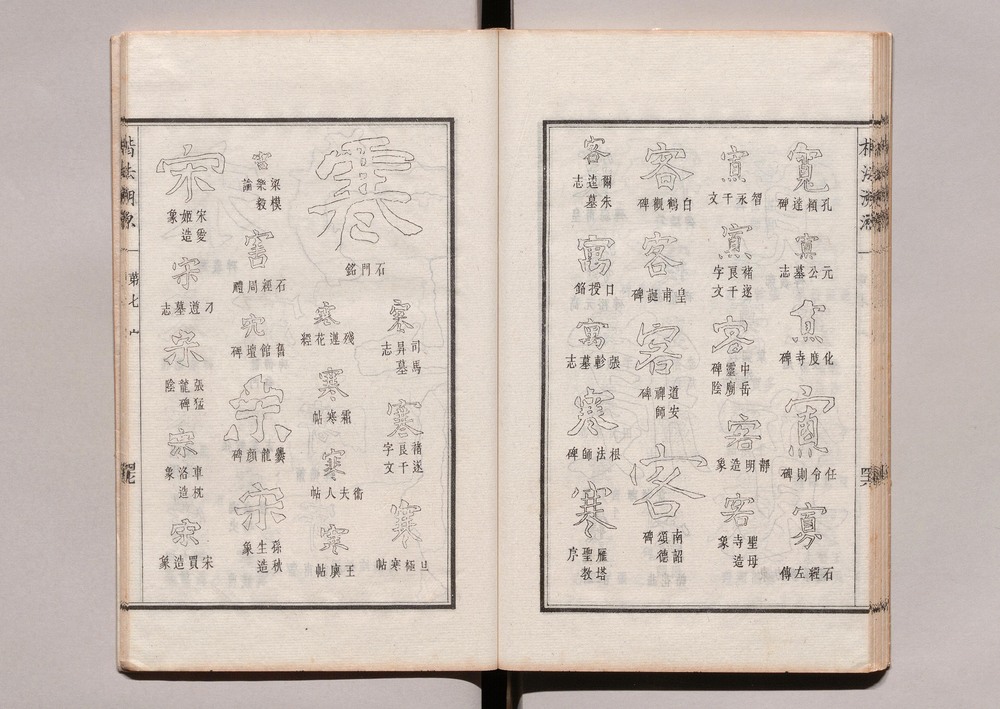 楷法溯源
寬
孔穎達碑
元公墓志
化度寺碑
任令則碑
寡
石經左傳
智永千文
褚遂良千字文
客
中岳靈廟碑陰
客
靜明造象
客
聖母寺造象
客
白鶴觀碑
客
皇甫誕碑
客
道安禪師碑
客
南詔德頌碑
客
爾朱造墓志
寓
口授銘
寓
張軫墓志
寒
根法師碑
寒
雁塔聖教序
寒
石門銘
寒
司馬昇墓志
寒
褚遂良千字文
寒
極寒帖
寒
殘蓮花經
寒
霜寒帖
寒
衛夫人帖
寒
王廙帖
害
梁模樂毅論
害
石經周禮
宄
舊館壇碑
宋
爨龍顏碑
宋
孫秋生造象
宋
宋愛姬造象
宋
刁遵墓志
宋
張猛龍碑陰
宋
車枕洛造象
宋
宋買造象
楷法溯源
第七
宀